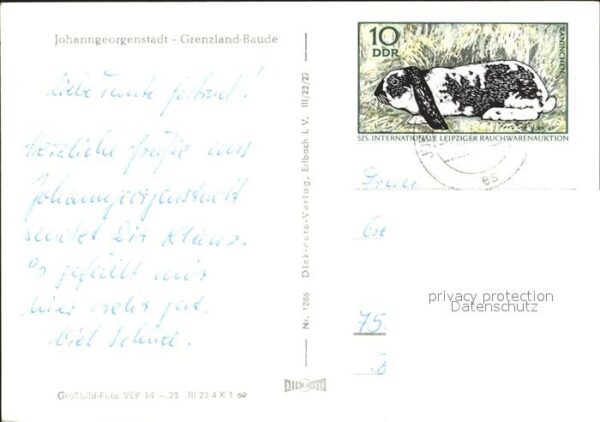 Johanngeorgenstadt - Grenzland-Baude
Liebe Tante
Herzliche Grüße aus
Johanngeorgenstadt
sendet Dir Klaus.
Es gefällt mir
hier sehr gut.
Viel Schnee.
Großbild-Foto VEP 14 -.25 III 23 4 K 1 69
Nr. 1286 Dick-Foto-Verlag, Erlbach i. V. III/23/22
DICK
10
DDR
KANINCHEN
525. INTERNATIONALE LEIPZIGER RAUCHWARENAUKTION
Frau
75
privacy protection
Datenschutz